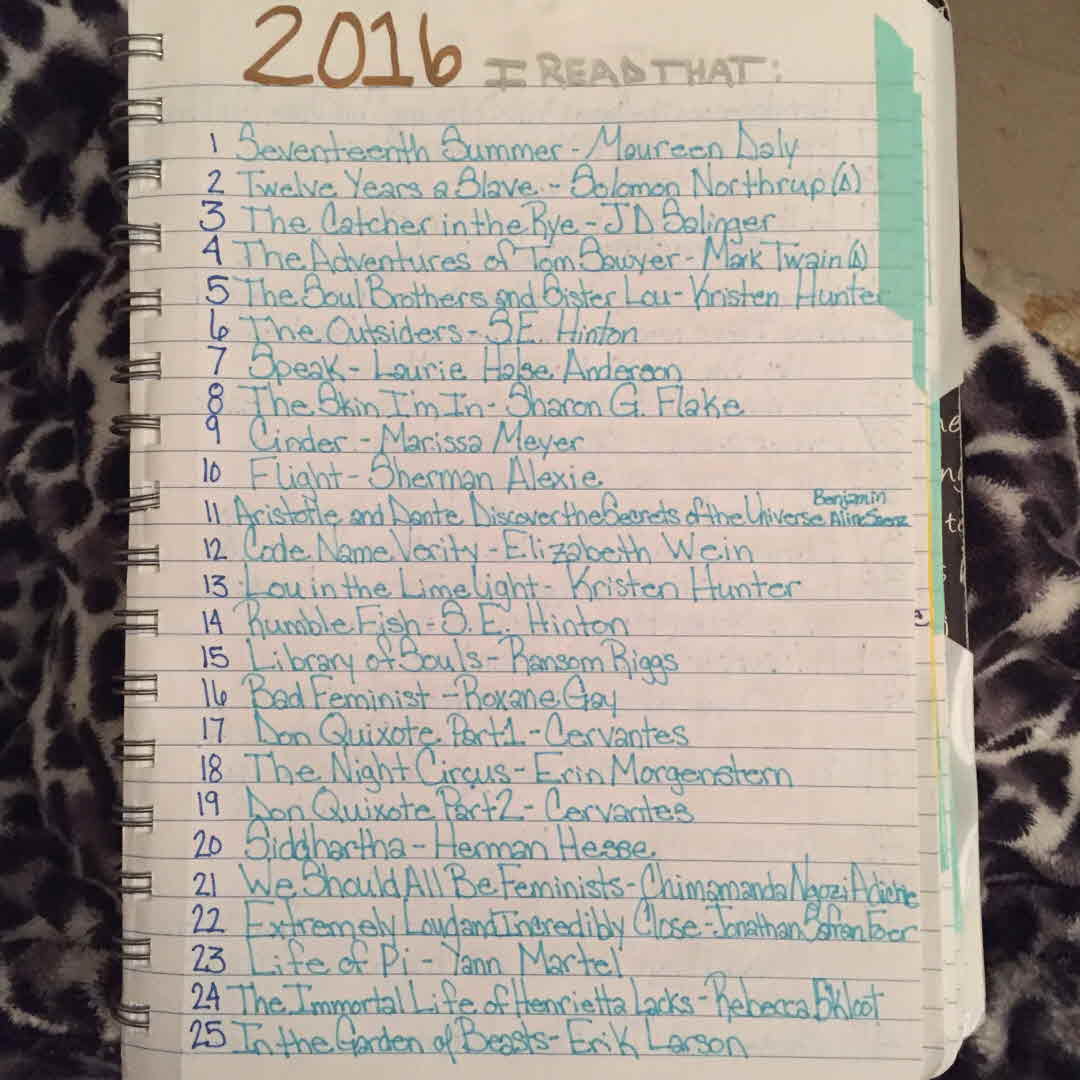 2016 I READ THAT:
1 Seventeenth Summer - Maureen Daly
2 Twelve Years a Slave - Solomon Northrup (A)
3 The Catcher in the Rye - JD Salinger
4 The Adventures of Tom Sawyer - Mark Twain (A)
5 The Soul Brothers and Sister Lou - Kristen Hunter
6 The Outsiders - S.E. Hinton
7 Speak - Laurie Halse Anderson
8 The Skin I'm In - Sharon G. Flake
9 Cinder - Marissa Meyer
10 Flight - Sherman Alexie
11 Aristotle and Dante Discover the Secrets of the Universe Benjamin Alire Saenz
12 Code Name Verity - Elizabeth Wein
13 Lou in the Limelight - Kristen Hunter
14 Rumble Fish - S.E. Hinton
15 Library of Souls - Ransom Riggs
16 Bad Feminist - Roxane Gay
17 Don Quixote Part 1 - Cervantes
18 The Night Circus - Erin Morgenstern
19 Don Quixote Part 2 - Cervantes
20 Siddhartha - Herman Hesse
21 We Should All Be Feminists - Chimamanda Ngozi Adichie
22 Extremely Loud and Incredibly Close - Jonathan Safran Foer
23 Life of Pi - Yann Martel
24 The Immortal Life of Henrietta Lacks - Rebecca Skloot
25 In the Garden of Beasts - Erik Larson